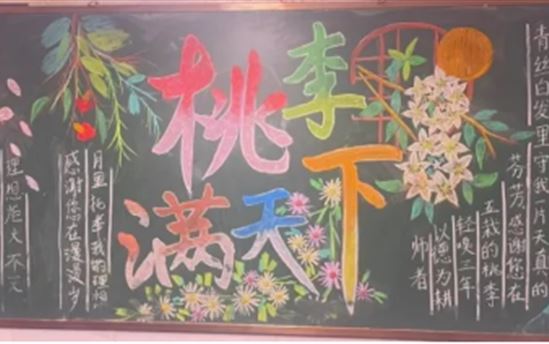 桃李
满天下
理想
感谢您在漫漫岁
月里托举我的理想
师者
以德为耕
轻唤三年
五载的桃李
芬芳,感谢您在
青丝白发里守我一片天真的